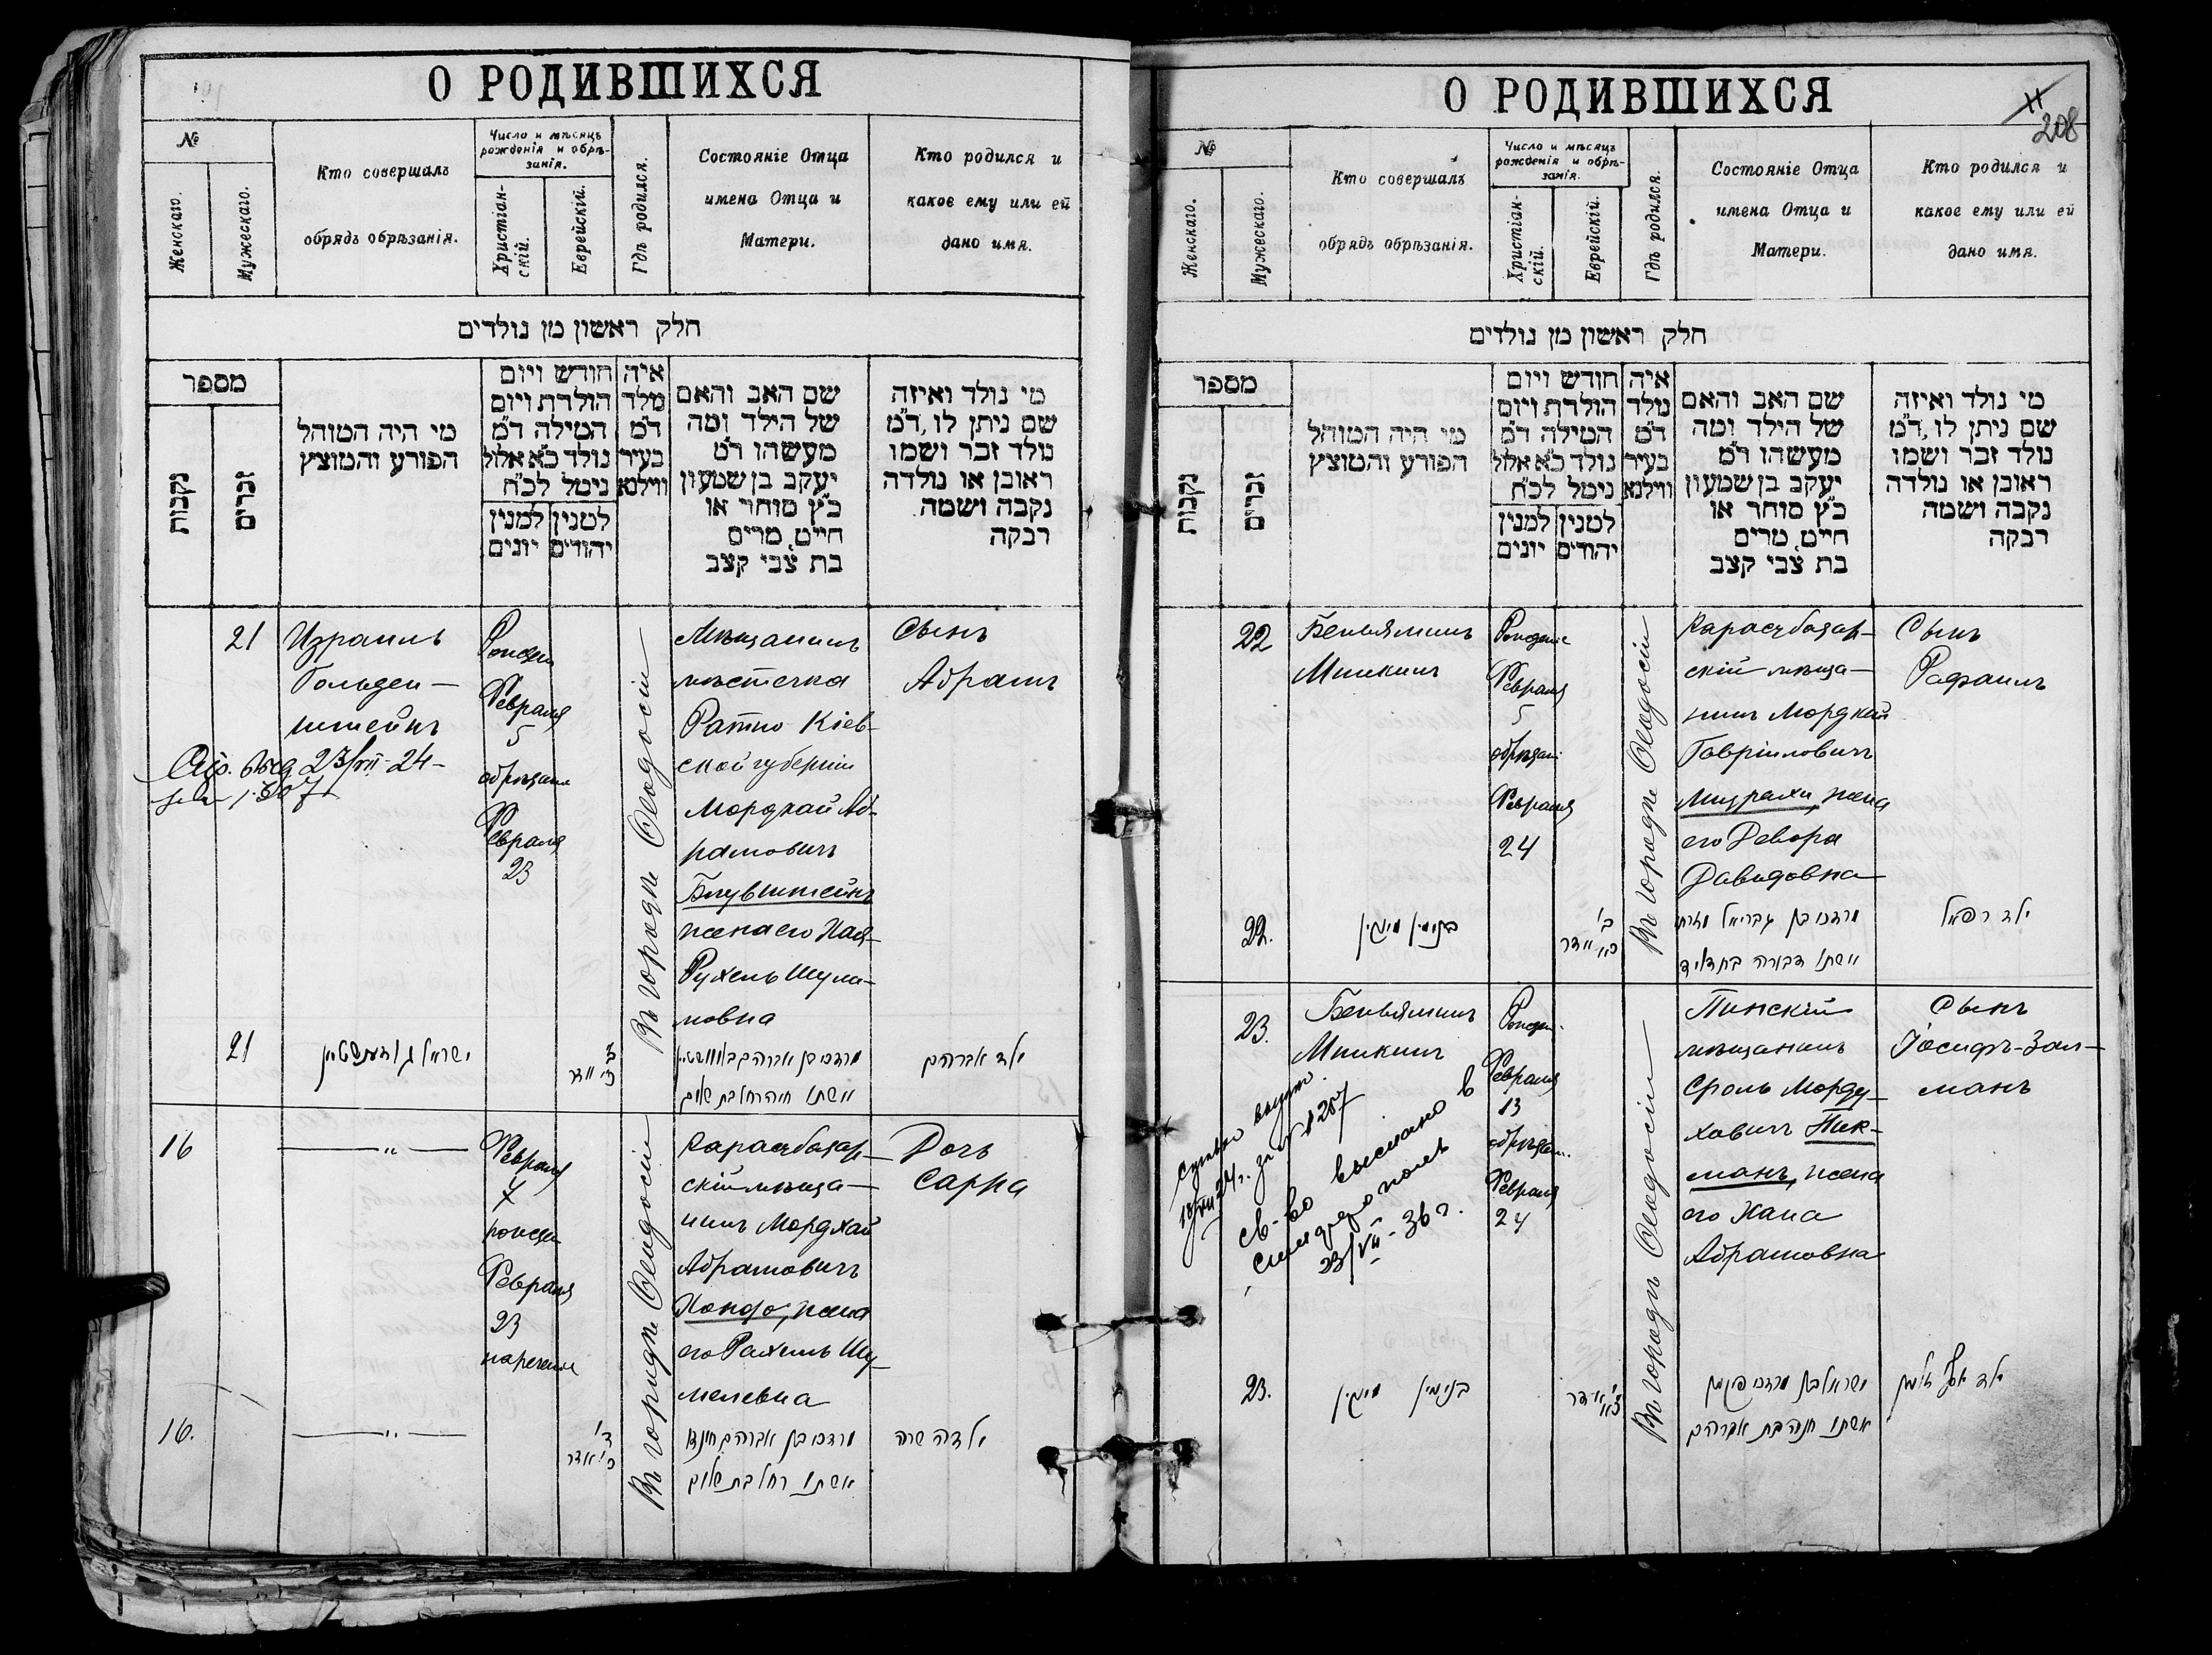 О РОДИВШИХСЯ
№
Женскаго.
Мужескаго.
Кто совершалъ
обрядъ обрѣзанія.
Число и мѣсяцъ
рожденія и обрѣ-
занія.
Христіан-
скій.
Еврейскій.
Гдѣ родился.
Состояніе Отца
имена Отца и
Матери.
Кто родился и
какое ему или ей
дано имя.
חלק ראשון מן נולדים
מספר
נקבות
זכרים
מי היה המוהל
הפורע והמוצץ
חודש ויום
הולדת ויום
המילה ד"מ
נולד כ"א אלול
נימל לכ"ח
למנין יהודים
למנין יונים
איה
מלד
ד"מ
בעיר
ווילנא
שם האב והאם
של הילד ומה
מעשהו ד"מ
יעקב בן שמעון
כ"ץ סוחר או
חייט, מרים
בת צבי קצב
מי נולד ואיזה
שם ניתן לו, ד"מ
נולד זכר ושמו
ראובן או נולדה
נקבה ושמה
רבקה
21
Израиль
Гольден-
штейнъ
Февраля
5
обрѣзаніе
Февраля
23
Въ городѣ Ѳеодосіи
Мѣщанинъ
мѣстечка
Ратно Кіев-
ской губерніи
Мордхай Аб-
рамовичъ
Блувштейнъ
жена его Хая-
Рухель Шула-
мовна
Сынъ
Абрамъ
21
ילד אברהם
16
Февраля
Февраля
23
нареченіе
Въ городѣ Ѳеодосіи
Карасубазар-
скій мѣща-
нинъ Мордхай
Абрамовичъ
Хондо, жена
его Рахиль Шу-
мелевна
Дочь
Сарра
16.
אשתו רחל בת שלום
ילדה שרה
О РОДИВШИХСЯ
11
208
№
Женскаго.
Мужескаго.
Кто совершалъ
обрядъ обрѣзанія.
Число и мѣсяцъ
рожденія и обрѣ-
занія.
Христіан-
скій.
Еврейскій.
Гдѣ родился.
Состояніе Отца
имена Отца и
Матери.
Кто родился и
какое ему или ей
дано имя.
חלק ראשון מן נולדים
מספר
נקבות
זכרים
מי היה המוהל
הפורע והמוצץ
חודש ויום
הולדת ויום
המילה ד"מ
נולד כ"א אלול
נימל לכ"ח
למנין יהודים
למנין יונים
איה
מלד
ד"מ
בעיר
ווילנא
שם האב והאם
של הילד ומה
מעשהו ד"מ
יעקב בן שמעון
כ"ץ סוחר או
חייט, מרים
בת צבי קצב
מי נולד ואיזה
שם ניתן לו, ד"מ
נולד זכר ושמו
ראובן או נולדה
נקבה ושמה
רבקה
22
Беньяминъ
Мишкинъ
Февраля
5
Февраля
24
Въ городѣ Ѳеодосіи
Карасубазар-
скій мѣща-
нинъ Мордхай
Гавріиловичъ
Мизрахи, жена
его Девора
Давидовна
Сынъ
Рафаилъ
22.
בנימין מישקין
מרדכי בן גבריאל מזרחי
אשתו דבורה בת דוד
ילד רפאל
23.
Беньяминъ
Мишкинъ
Февраля
13
Февраля
24
Въ городѣ Ѳеодосіи
Пинскій
мѣщанинъ
Сроль Морду-
ховичъ Пик-
манъ, жена
его Хана
Абрамовна
Сынъ
Іосифъ-Зал-
манъ
св-во выслано в
Симферополь
23/VII-36 г.
23.
בנימין מישקין
ישראל בן מרדכי פיקמן
אשתו חנה בת אברהם
ילד יוסף זלמן